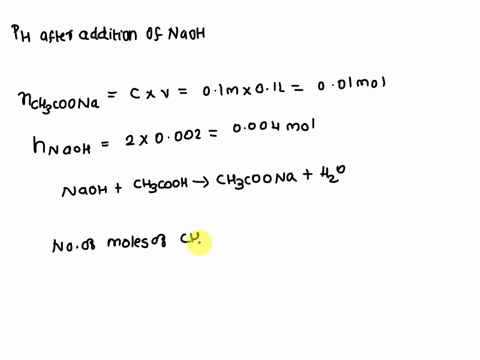 PH after addition of NaOH
nCH3COONa = C x v = 0.1m x 0.1L = 0.01mol
hNaOH = 2 x 0.002 = 0.004 mol
NaOH + CH3COOH → CH3COONa + H2O
No. of moles of CH